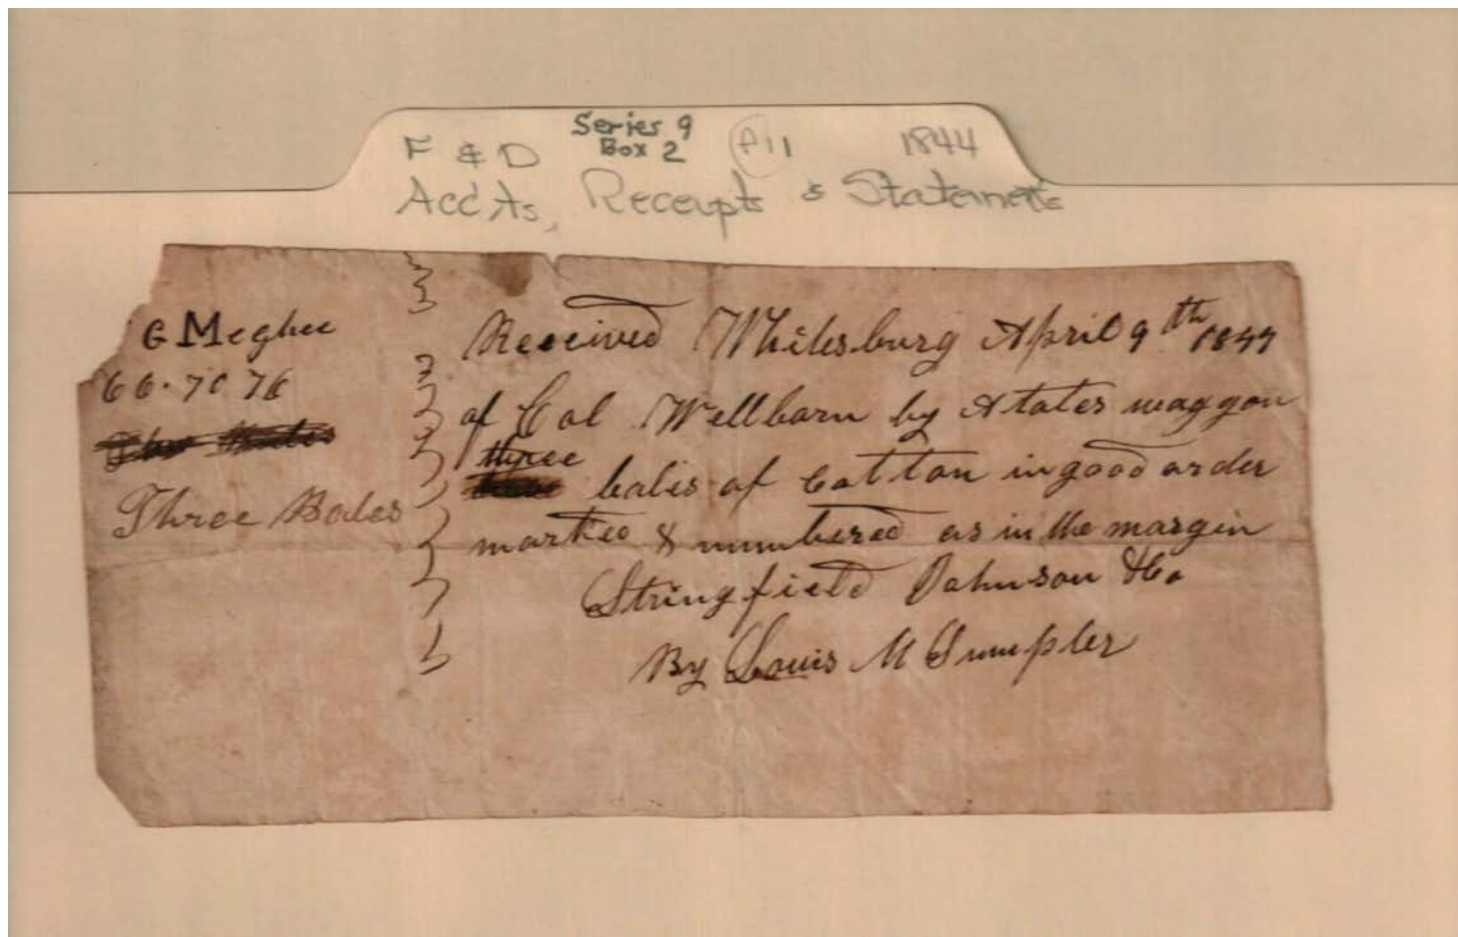 Series 9
F & D Box 2 A11 1844
Acc'ts, Receipts & Statements
G Meghee
66. 70 76
Three Bales
Received Whitesburg April 9th 1844
of Col Wellborn by States waggon
three
bales of Cotton in good order
marked & numbered as in the margin
Stringfield Johnson & Co
By Louis M Sumpler